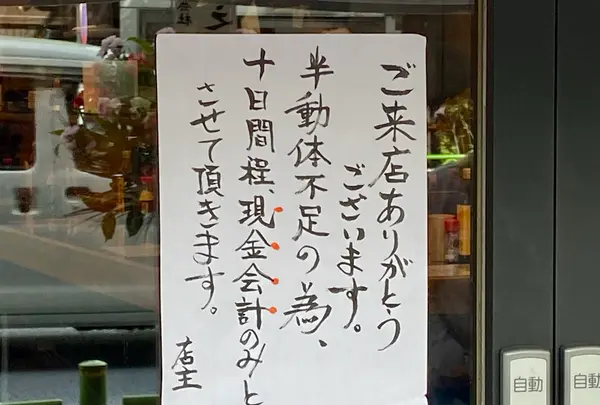 ご来店ありがとう
ございます。
半動体不足の為、
十日間程、現金会計のみと
させて頂きます。
店主
自動
自動